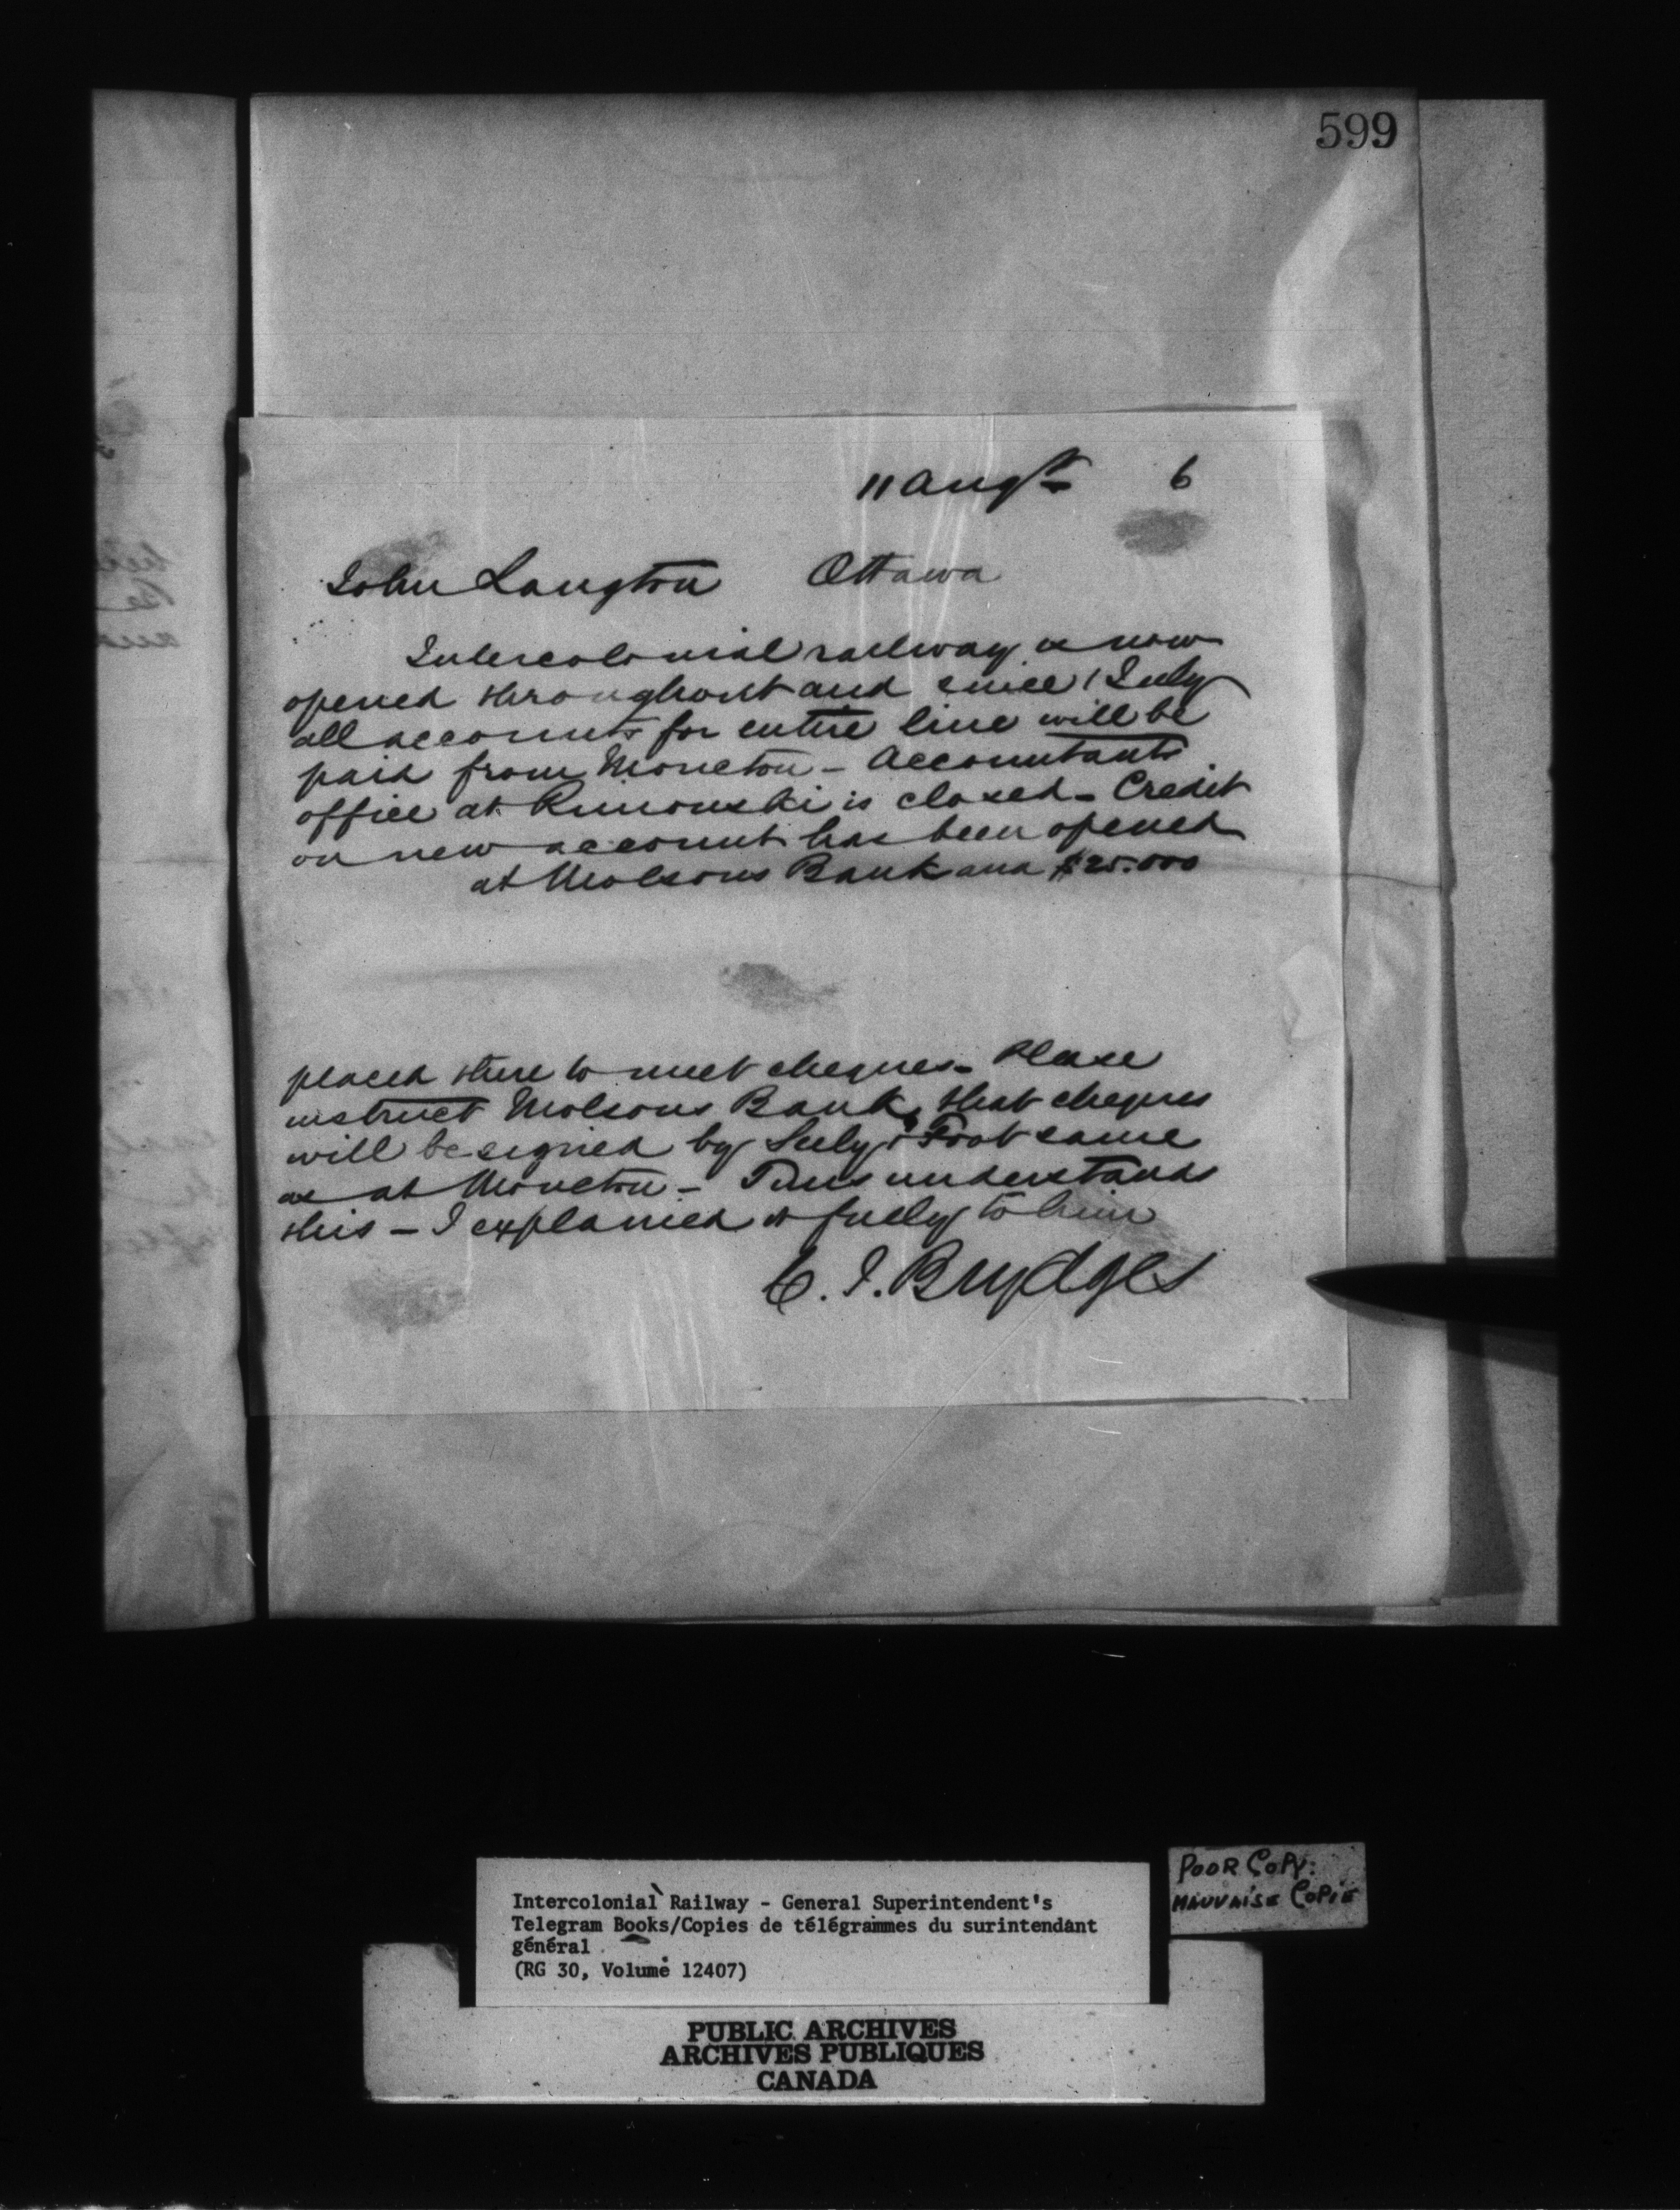 599
11 Augst 6
John Langton Ottawa
Intercolonial railway is now
opened throughout and since 1 July
all accounts for entire line will be
paid from Moncton - Accountants
office at Rimouski is closed - Credit
on new account has been opened
at Molsons Bank and $25.000
placed there to meet cheques - Please
instruct Molsons Bank that cheques
will be signed by Seely & Foot same
as at Moncton - understands
this - I explained it fully to him
C. J. Brydges
Intercolonial Railway - General Superintendent's
Telegram Books/Copies de télégrammes du surintendant
général
(RG 30, Volume 12407)
POOR COPY.
MAUVAISE COPIE
PUBLIC ARCHIVES
ARCHIVES PUBLIQUES
CANADA